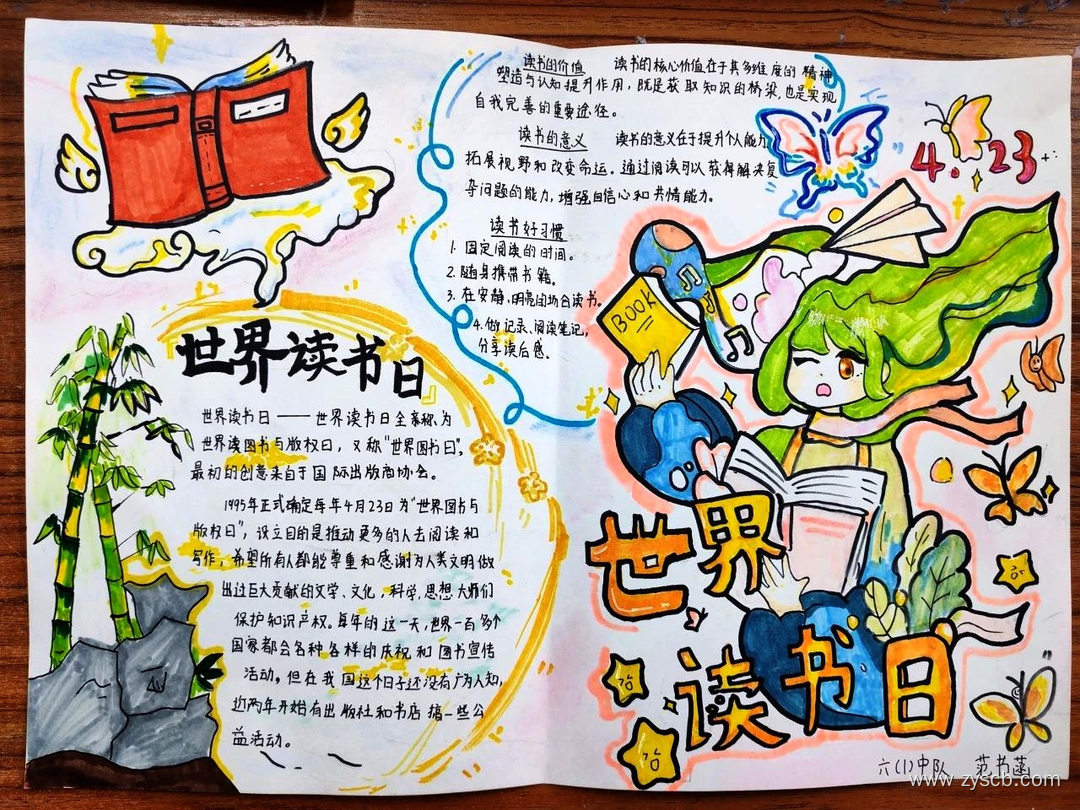 世界读书日
世界读书日——世界读书日全称为
世界读图书与版权日，又称"世界图书日"，
最初的创意来自于国际出版商协会。
1995年正式确定每年4月23日为"世界图书与
版权日"，设立目的是推动更多的人去阅读和
写作，希望所有人都能尊重和感谢为人类文明做
出过巨大贡献的文学、文化，科学，思想大师们
保护知识产权。每年的这一天，世界一百多个
国家都会各种各样的庆祝和图书宣传
活动。但在我国这个日子还没有广为人知，
近两年开始有出版社和书店搞一些公
益活动。
读书的价值 读书的核心价值在于其多维度的精神
塑造与认知提升作用，既是获取知识的桥梁，也是实现
自我完善的重要途径。
读书的意义 读书的意义在于提升个人能力
拓展视野和改变命运。通过阅读可以获得解决复
杂问题的能力，增强自信心和共情能力。
读书好习惯
1. 固定阅读的时间。
2. 随身携带书籍。
3. 在安静，明亮的场合读书。
4. 做记录、阅读笔记，
分享读后感。
4.23
BOOK
世界
读书日
六(1)中队 范书菡
www.zyscb.com